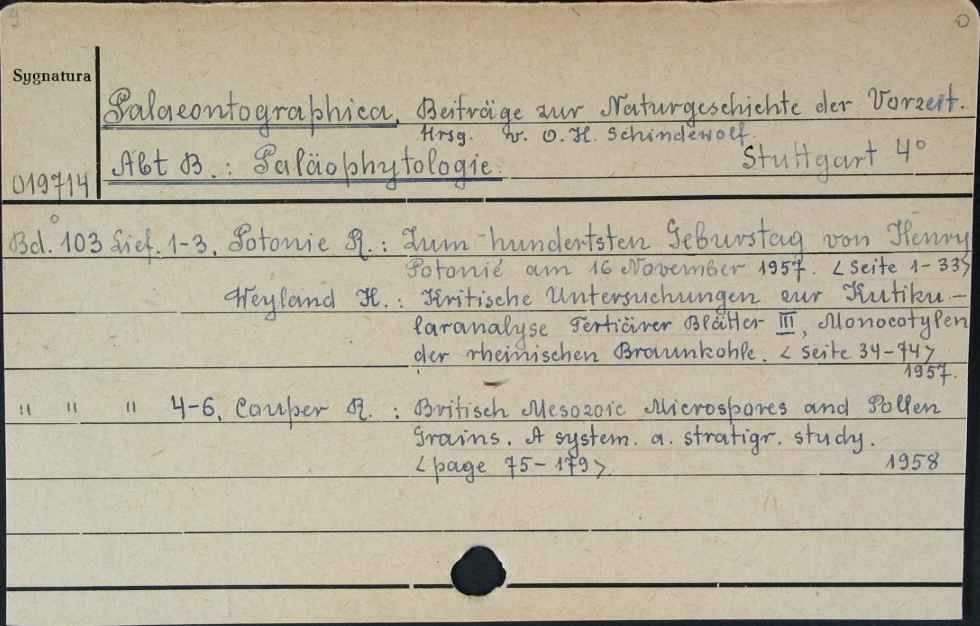 Sygnatura
Palaeontographica, Beiträge zur Naturgeschichte der Vorzeit.
Hrsg. v. O. H. Schindewolf.
Abt B.: Paläophytologie.
Stuttgart 4°
019714
Bd. 103 Lief. 1-3, Potonie R.: Zum hundertsten Geburstag von Henry
Potonié am 16 November 1957. <Seite 1-33>
Weyland H.: Kritische Untersuchungen zur Kutiku-
laranalyse Tertiärer Blätter III, Monocotylen
der rheinischen Braunkohle. <Seite 34-74>
1957.
" " " 4-6, Couper R.: British Mesozoic Microspores and Pollen
Grains. A system. a. stratigr. study.
<page 75-179> 1958